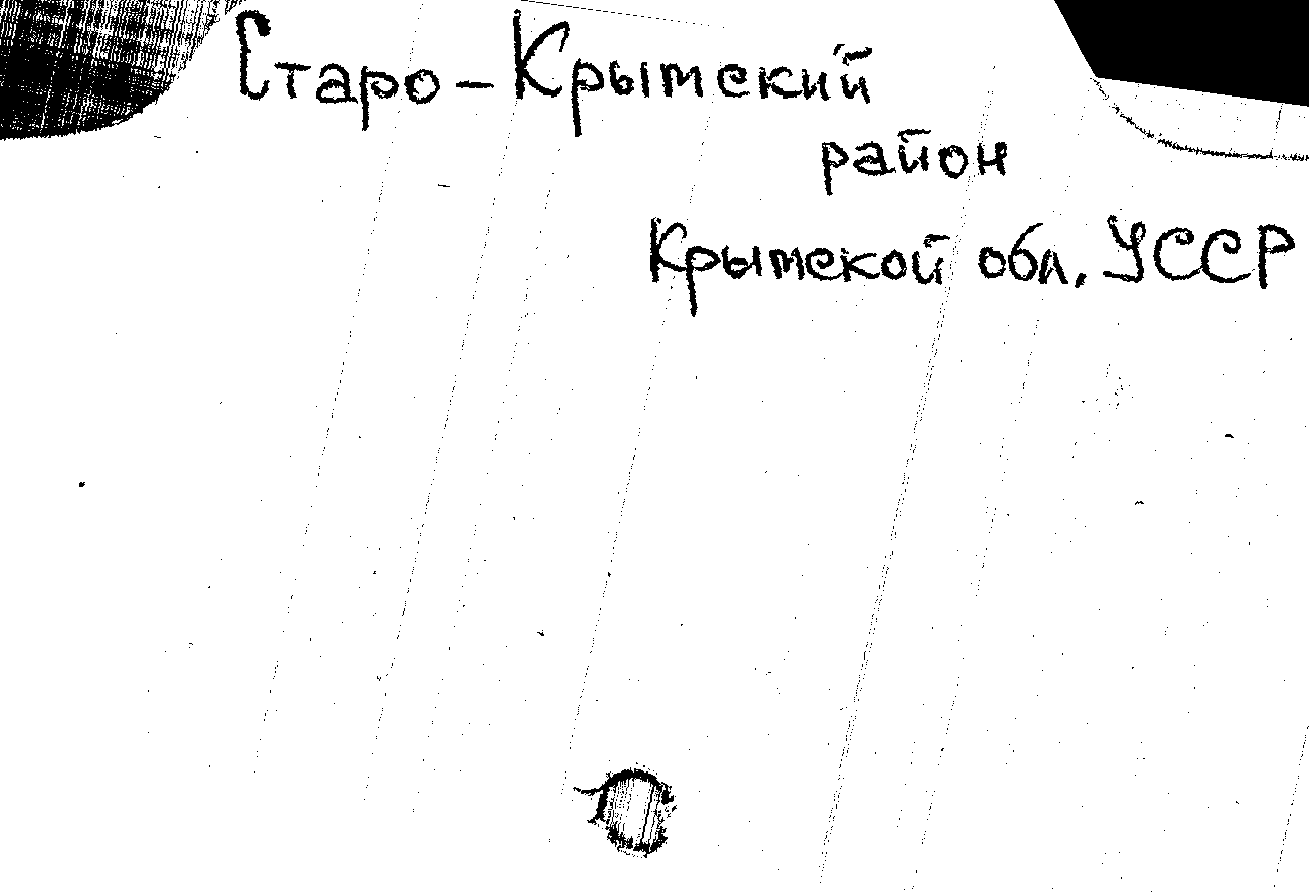 Старо-Крымский
район
Крымской обл. УССР